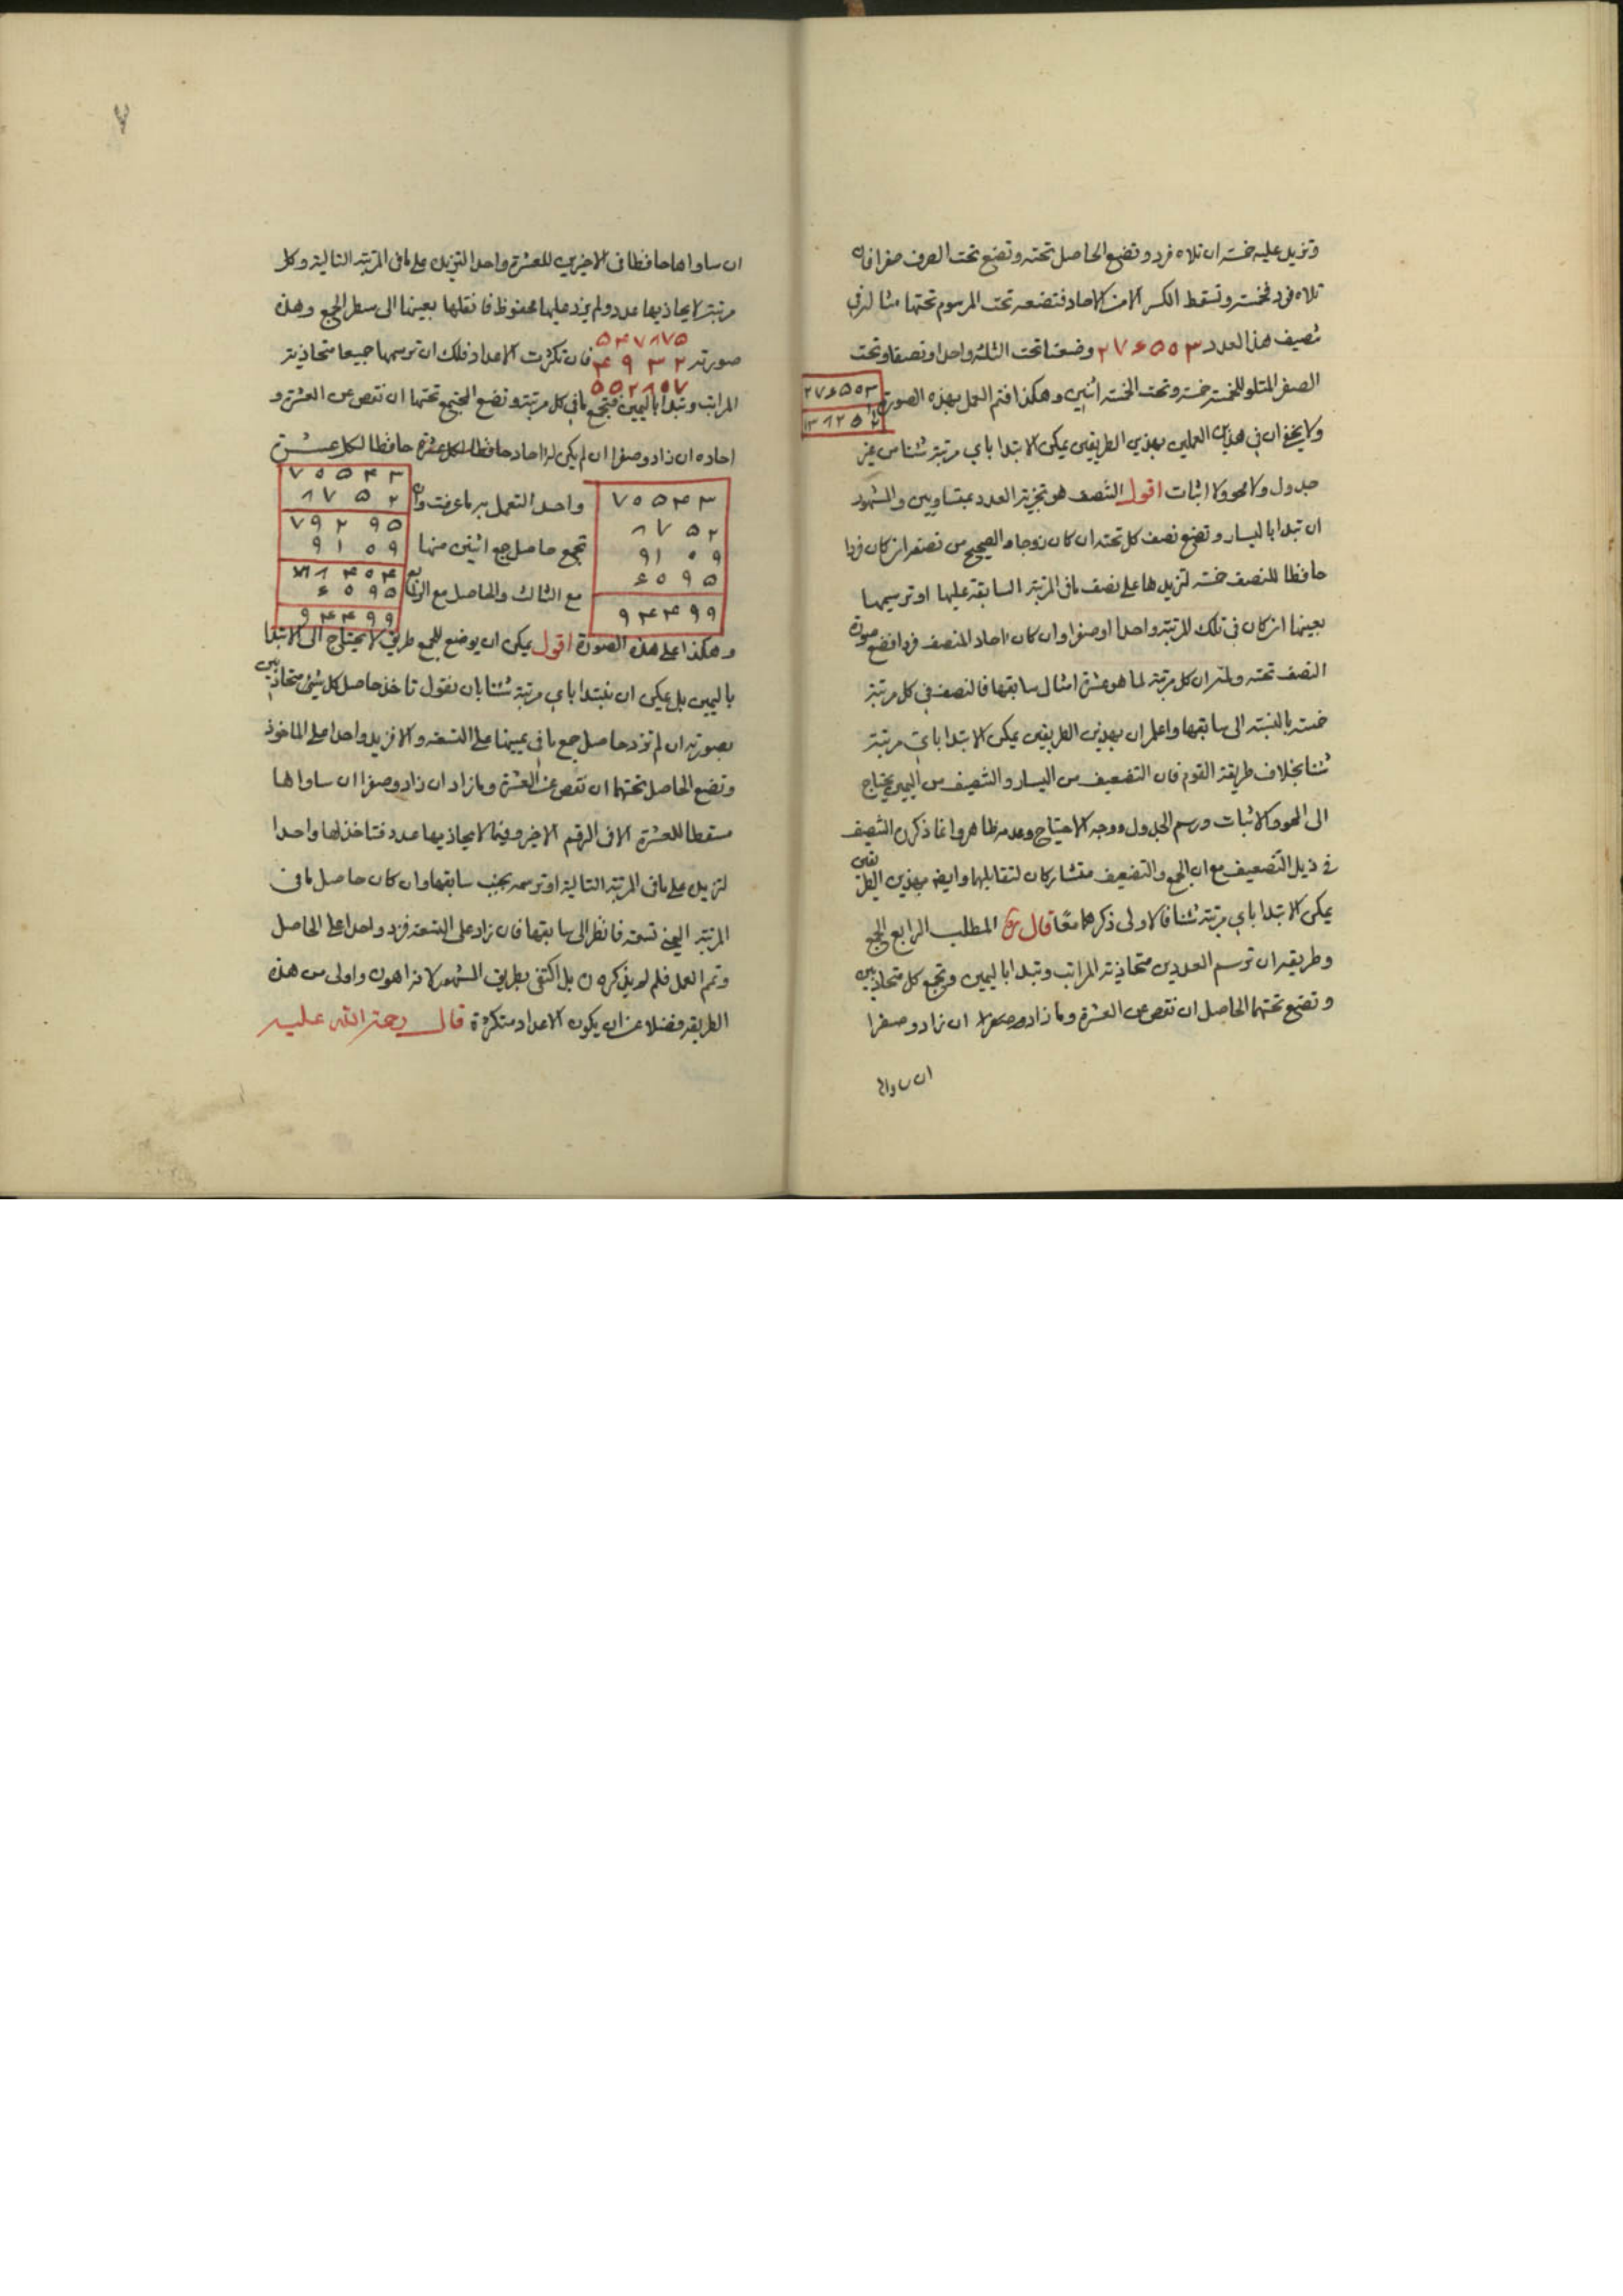 وتزيد عليه خمسة ان تلاه فرد وتضع الحاصل تحته وتضع تحت الصفر صفرا فان
تلاه فرد فخمسة وتسقط الكسر الا من الاحاد فتضعه تحت المرسوم تحتها مثاله في
تنصيف هذا العدد ٢٧٤٥٥٣ وضعنا تحت الثلثة واحدا ونصفا وتحت
الصفر المتلو للخمسة خمسة وتحت الخمسة اثنين وهكذا فتم العمل بهذه الصورة
ولا يخفى ان في هذين العملين بهذين الطريقين يمكن الابتدا باي مرتبة شئنا من غير
جدول ولا محو ولا اثبات اقول التنصيف هو تجزية العدد بمتساويين والمشهور
ان تبدا باليسار وتضع نصف كل تحته ان كان زوجا والصحيح من نصفه ان كان فردا
حافظا للنصف خمسة لتزيدها على نصف ما في المرتبة السابقة عليها او ترسمها
بعينها ان كان في تلك المرتبة واحدا او صفرا وان كان احاد المنصف فردا فضع صورة
النصف تحته ولان كل مرتبة لما هو عشرة امثال سابقها فالنصف في كل مرتبة
خمسة بالنسبة الى سابقها واعلم ان بهذين الطريقين يمكن الابتدا باي مرتبة
شئنا بخلاف طريقة القوم فان التضعيف من اليسار والتنصيف من اليمين يحتاج
الى المحو والاثبات ورسم الجدول ووجه الاحتياج وعدمه ظاهر وانما ذكرن التنصيف
في ذيل التضعيف مع ان الجمع والتضعيف متشاركان لتقابلهما وايضا بهذين الطريقين
يمكن الابتدا باي مرتبة شئنا فالاولى ذكرهما معًا قال المطلب الرابع الجمع
وطريقه ان ترسم العددين متحاذية المراتب وتبدا باليمين وتجمع كل متحاذيين
وتضع تحتهما الحاصل ان نقص عن العشرة وما زاد ان زاد وصفرا
ان ساواها
٧
ان ساواها حافظا في الاخيرين للعشرة واحدا لتزيده على ما في المرتبة التالية وكل
مرتبة لا يحاذيها عدد ولم يزد عليها محفوظ فانقلها بعينها الى سطر الجمع وهذه
٥٠٤٧٨٧٥
صورته ٤٩٣٢ فان تكثرت الاعداد فلك ان ترسمها جميعا متحاذية
٥٥٢٨٠٧
المراتب وتبدا باليمين فتجمع ما في كل مرتبة وتضع المجتمع تحتها ان نقص عن العشرة و
احاده ان زاد وصفرا ان لم يكن له احاد حافظا لكل عشرة
٧٥٥٤٣ ٨٧٥٢ ٩١٠٩ ٤٥٩٥ ٩٤٤٩٩
واحدا لتعمل به ما عرفت وان
تجمع حاصل جمع اثنين منها
مع الثالث والحاصل مع الرابع
وهكذا على هذه الصورة اقول يمكن ان يوضع للجمع طريق لا يحتاج الى الابتدا
باليمين بل يمكن ان نبتدا باي مرتبة شئنا بان نقول تاخذ حاصل كل متحاذيين
بصورته ان لم تزد حاصل جمع ما في يمينهما على التسعة والا فزيد واحدا على الماخوذ
وتضع الحاصل تحتهما ان نقص عن العشرة وما زاد ان زاد وصفرا ان ساواها
مسقطا للعشرة الا في الرقم الاخير وفيما لا يحاذيها عدد فتاخذ لها واحدا
لتزيده على ما في المرتبة التالية او ترسمه بجنب سابقها وان كان حاصل ما في
المرتبة اليمنى تسعة فانظر الى سابقها فان زاد على التسعة فزد واحدا على الحاصل
وتمم العمل فلم لم يذكره بل اكتفى بطريق المشهور لانه اهون واولى من هذه
الطريقة فضلا عن ان يكون الاعداد متكثرة قال رحمة الله عليه